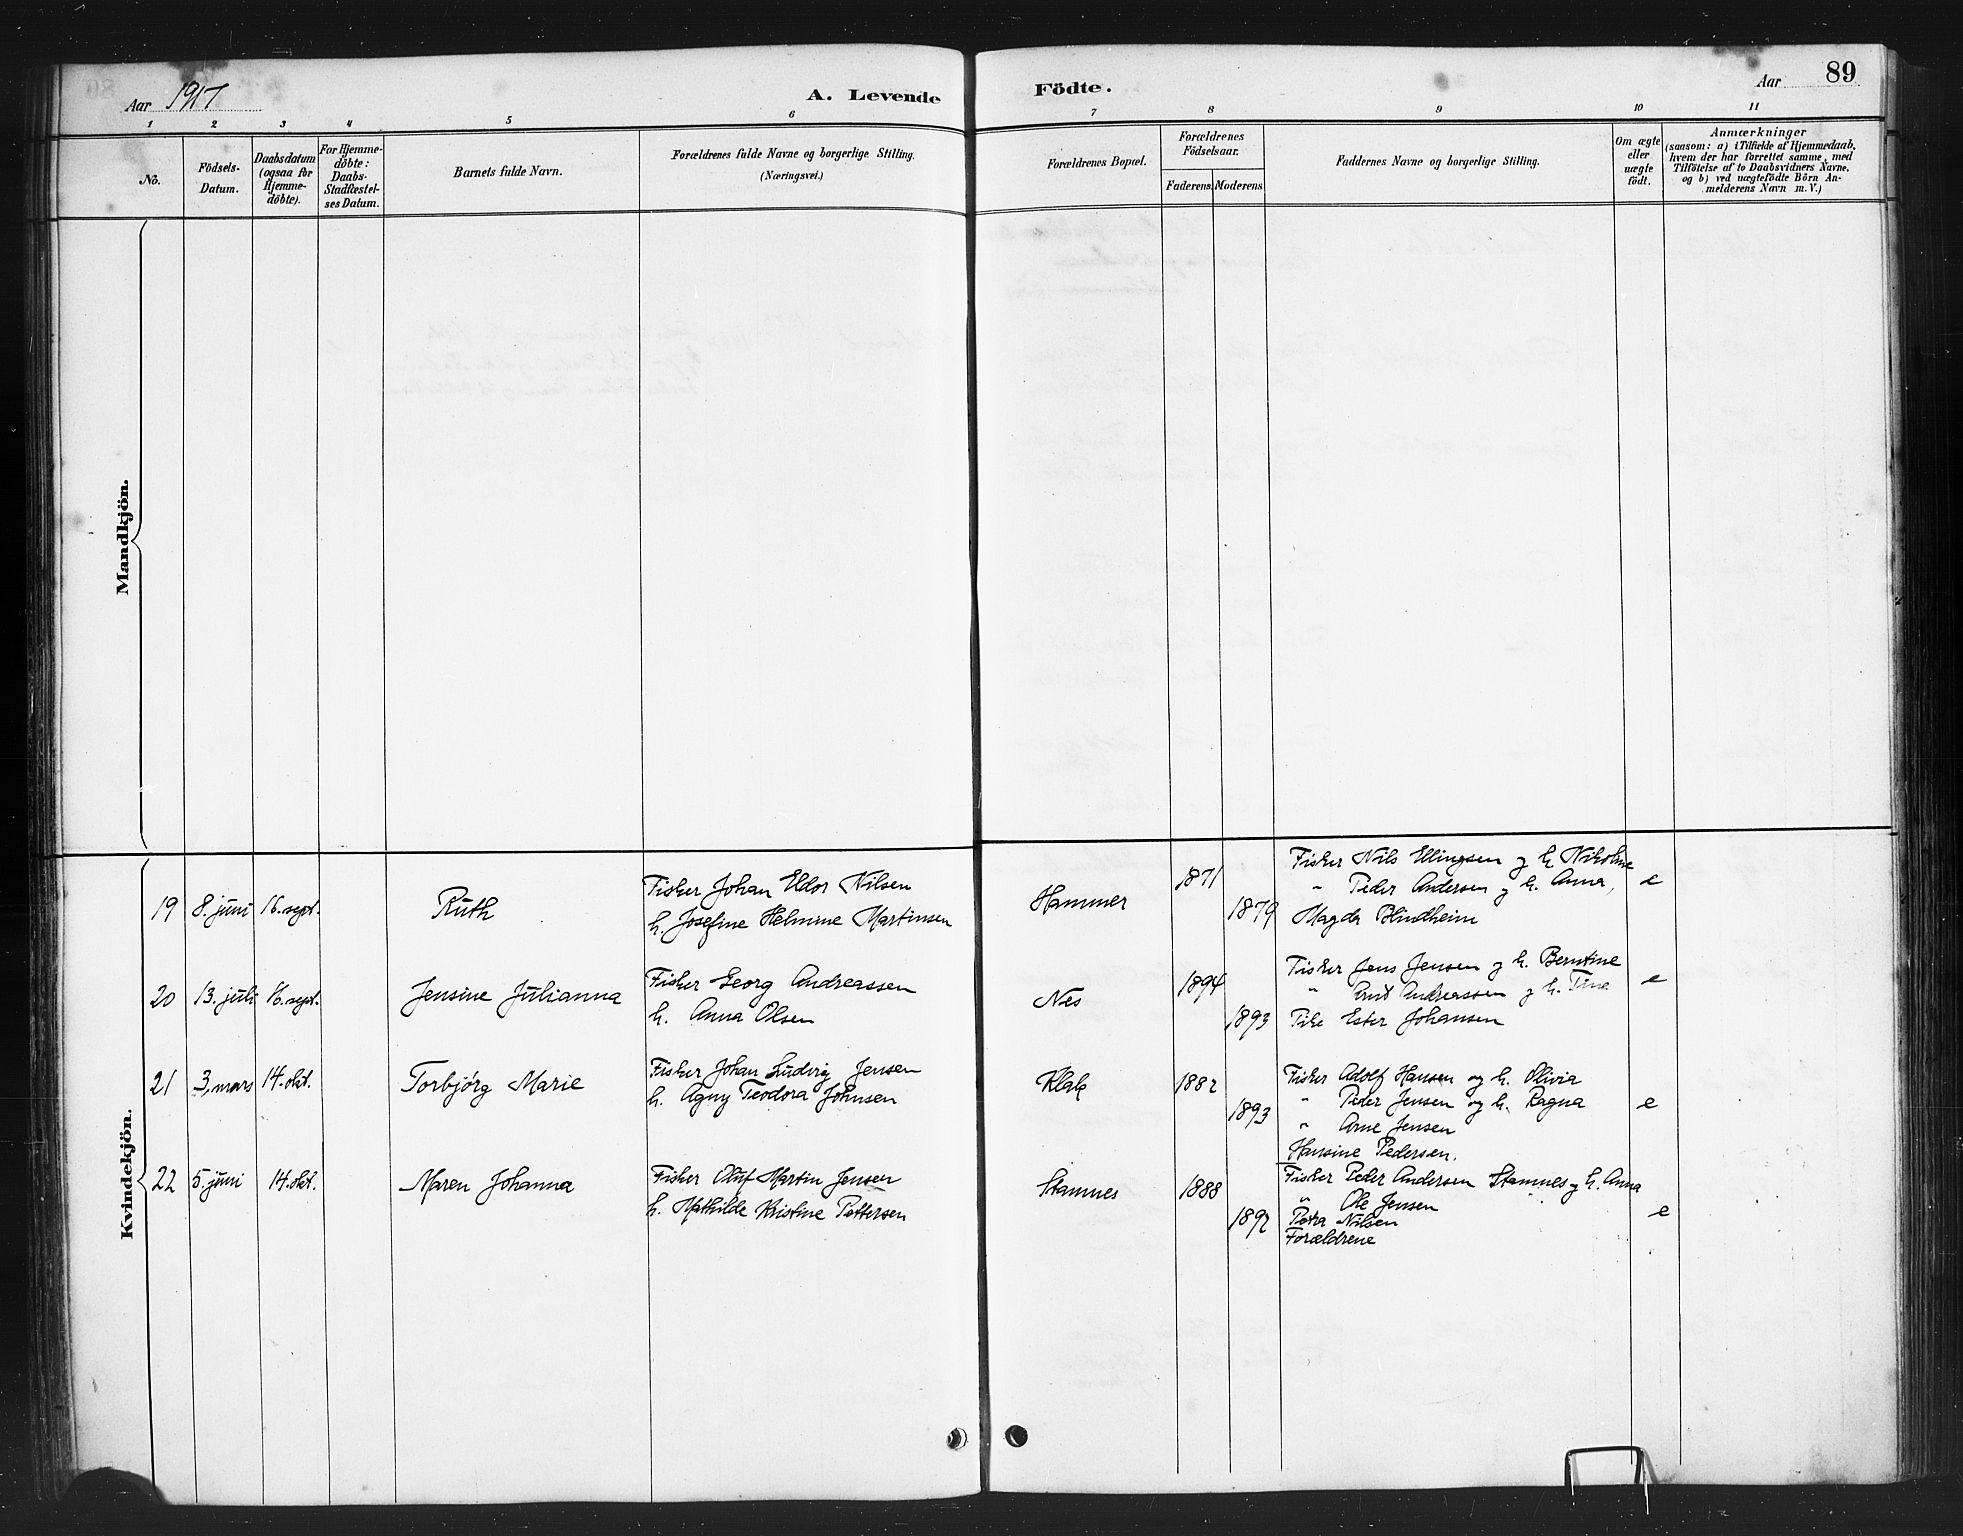 Aar 1917
A. Levende
Födte.
Aar 89
1 2 3 4 5 6 7 8 9 10 11
No.
Födsels-
Datum.
Daabsdatum
(ogsaa for
Hjemme-
döbte).
For Hjemme-
döbte:
Daabs-
Stadfæstel-
ses Datum.
Barnets fulde Navn.
Forældrenes fulde Navne og borgerlige Stilling.
(Næringsvei.)
Forældrenes Bopæl.
Forældrenes
Födselsaar.
Faderens. Moderens.
Faddernes Navne og borgerlige Stilling.
Om ægte
eller
uægte
födt.
Anmærkninger
(saasom: a) i Tilfælde af Hjemmedaab,
hvem der har forrettet samme, med
Tilföielse af to Daabsvidners Navne,
og b) ved uægtefödte Börn An-
melderens Navn m. V.)
Mandkjön.
Kvindekjön.
19 8. juni 16. sept. Ruth
Fisker Johan Eldor Nilsen
h. Josefine Helmine Martinsen
Hammer 1871
1879
Fisker Nils Ellingsen og h. Nikoline
" Peder Andersen og h. Anna, e
Magda Blindheim
20 13. juli 16. sept. Jensine Julianna
Fisker Georg Andreassen
h. Anna Olsen
Nes 1894
1893
Fisker Jens Jensen og h. Berntine
" Andreassen og h. Tina e
Pike Ester Johansen
21 3. mars 14. okt. Torbjörg Marie
Fisker Johan Ludvig Jensen
h. Agny Teodora Johnsen
Klak 1882
1893
Fisker Adolf Hansen og h. Olivia
" Peder Jensen og h. Ragna e
" Arne Jensen
Hansine Pedersen.
22 5. juni 14. okt. Maren Johanna
Fisker Oluf Martin Jensen
h. Mathilde Kristine Pettersen
Stamnes 1888
1892
Fisker Peder Andersen Stamnes og h. Anna
" Ole Jensen
Petra Nilsen e
Forældrene